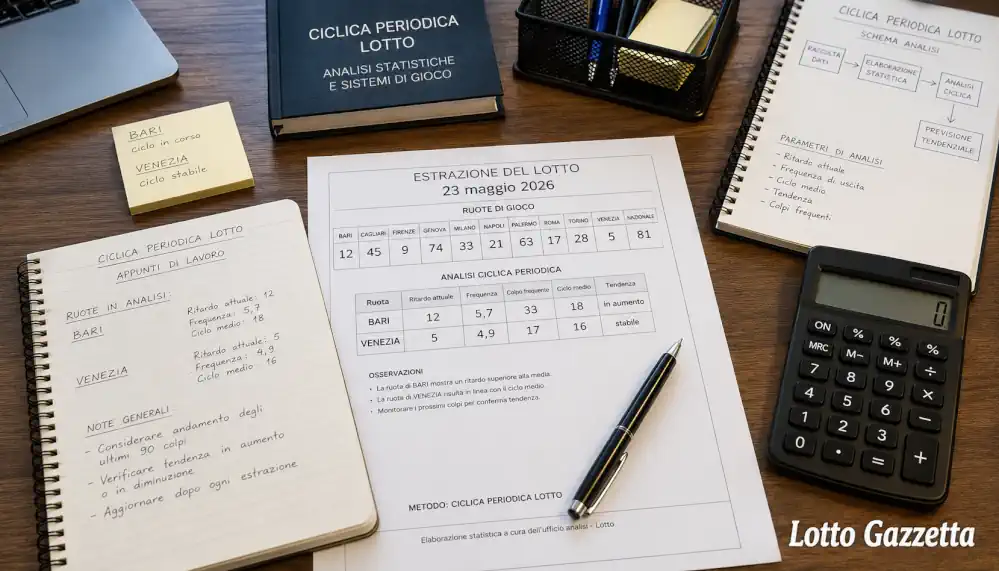 CICLICA PERIODICA
LOTTO
ANALISI STATISTICHE
E SISTEMI DI GIOCO
BARI
ciclo in corso
VENEZIA
ciclo stabile
CICLICA PERIODICA LOTTO
SCHEMA ANALISI
RACCOLTA
DATI
ELABORAZIONE
STATISTICA
ANALISI
CICLICA
PREVISIONE
TENDENZIALE
PARAMETRI DI ANALISI
- Ritardo attuale
- Frequenza di uscita
- Ciclo medio
- Tendenza
- Colpi frequenti
CICLICA PERIODICA LOTTO
APPUNTI DI LAVORO
RUOTE IN ANALISI:
BARI
Ritardo attuale: 12
Frequenza: 5,7
Ciclo medio: 18
VENEZIA
Ritardo attuale: 5
Frequenza: 4,9
Ciclo medio 16
NOTE GENERALI
- Considerare andamento degli
ultimi 90 colpi
- Verificare tendenza in aumento
o in diminuzione
- Aggiornare dopo ogni estrazione
ESTRAZIONE DEL LOTTO
23 maggio 2026
RUOTE DI GIOCO
BARI CAGLIARI FIRENZE GENOVA MILANO NAPOLI PALERMO ROMA TORINO VENEZIA NAZIONALE
12 45 9 74 33 21 63 17 28 5 81
ANALISI CICLICA PERIODICA
Ruota Ritardo attuale Frequenza Colpo frequente Ciclo medio Tendenza
BARI 12 5,7 33 18 in aumento
VENEZIA 5 4,9 17 16 stabile
OSSERVAZIONI
• La ruota di BARI mostra un ritardo superiore alla media.
• La ruota di VENEZIA risulta in linea con il ciclo medio.
• Monitorare i prossimi colpi per conferma tendenza.
METODO: CICLICA PERIODICA LOTTO
Elaborazione statistica a cura dell'ufficio analisi - Lotto
0
ON % % %
MRC M- M+ ÷
7 8 9 ×
4 5 6 −
1 2 3 +
0 • =
Lotto Gazzetta